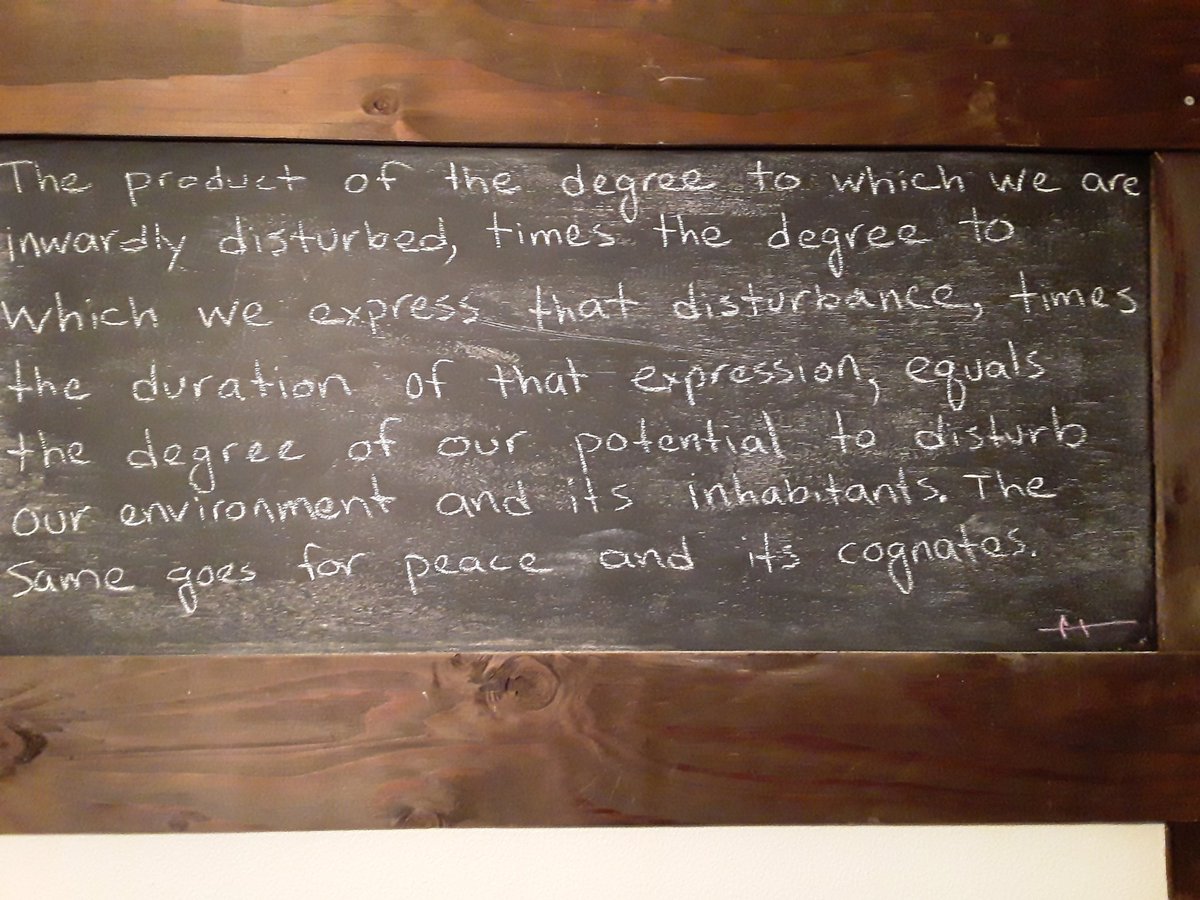 The product of the degree to which we are
inwardly disturbed, times the degree to
which we express that disturbance, times
the duration of that expression, equals
the degree of our potential to disturb
our environment and its inhabitants. The
Same goes for peace and its cognates.